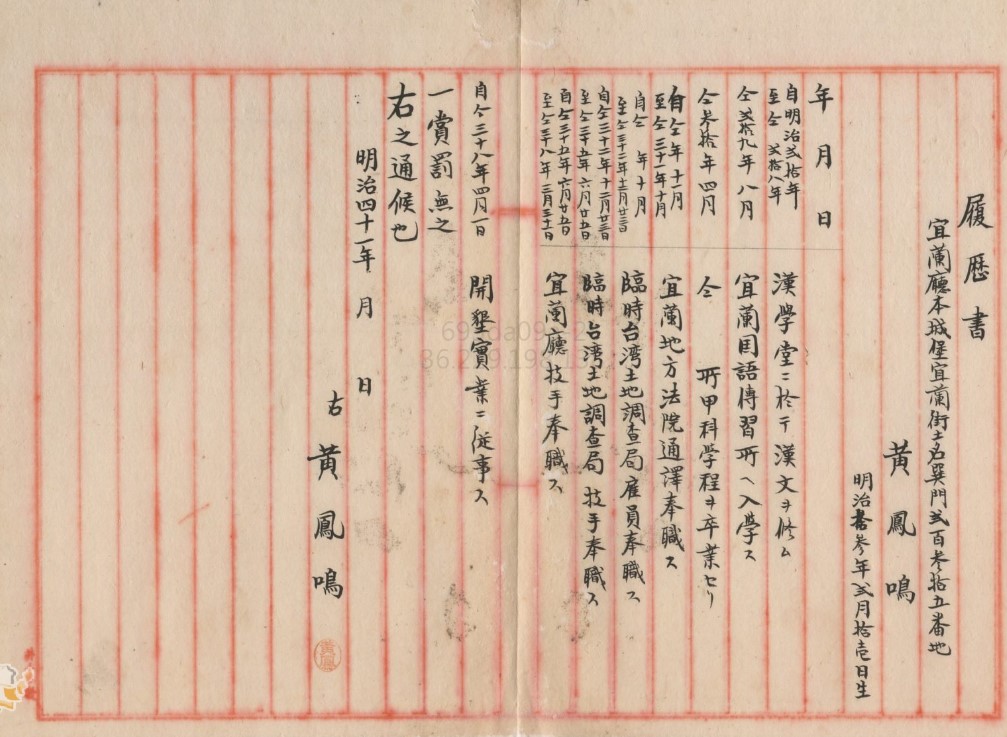 履歷書
宜蘭廳本城堡宜蘭街土名巽門弍百参拾五番地
黃鳳鳴
明治拾参年弍月拾壱日生
年月日
自明治弍拾年
至仝弍拾八年 漢學堂ニ於テ漢文ヲ修ム
仝弍拾九年八月 宜蘭国語傳習所ヘ入學ス
仝参拾年四月 仝所甲科学程ヲ卒業セリ
自仝年十一月
至仝三十一年十月 宜蘭地方法院通譯奉職ス
自仝年十月
至仝三十二年十二月廿三日 臨時台湾土地調查局雇員奉職ス
自仝三十二年十二月廿三日
至仝三十五年六月廿五日 臨時台湾土地調查局技手奉職ス
自仝三十五年六月廿五日
至仝三十八年三月三十日 宜蘭廳技手奉職ス
自仝三十八年四月一日 開墾實業ニ從事ス
一賞罰無之
右之通候也
明治四十一年月日
右 黃鳳鳴